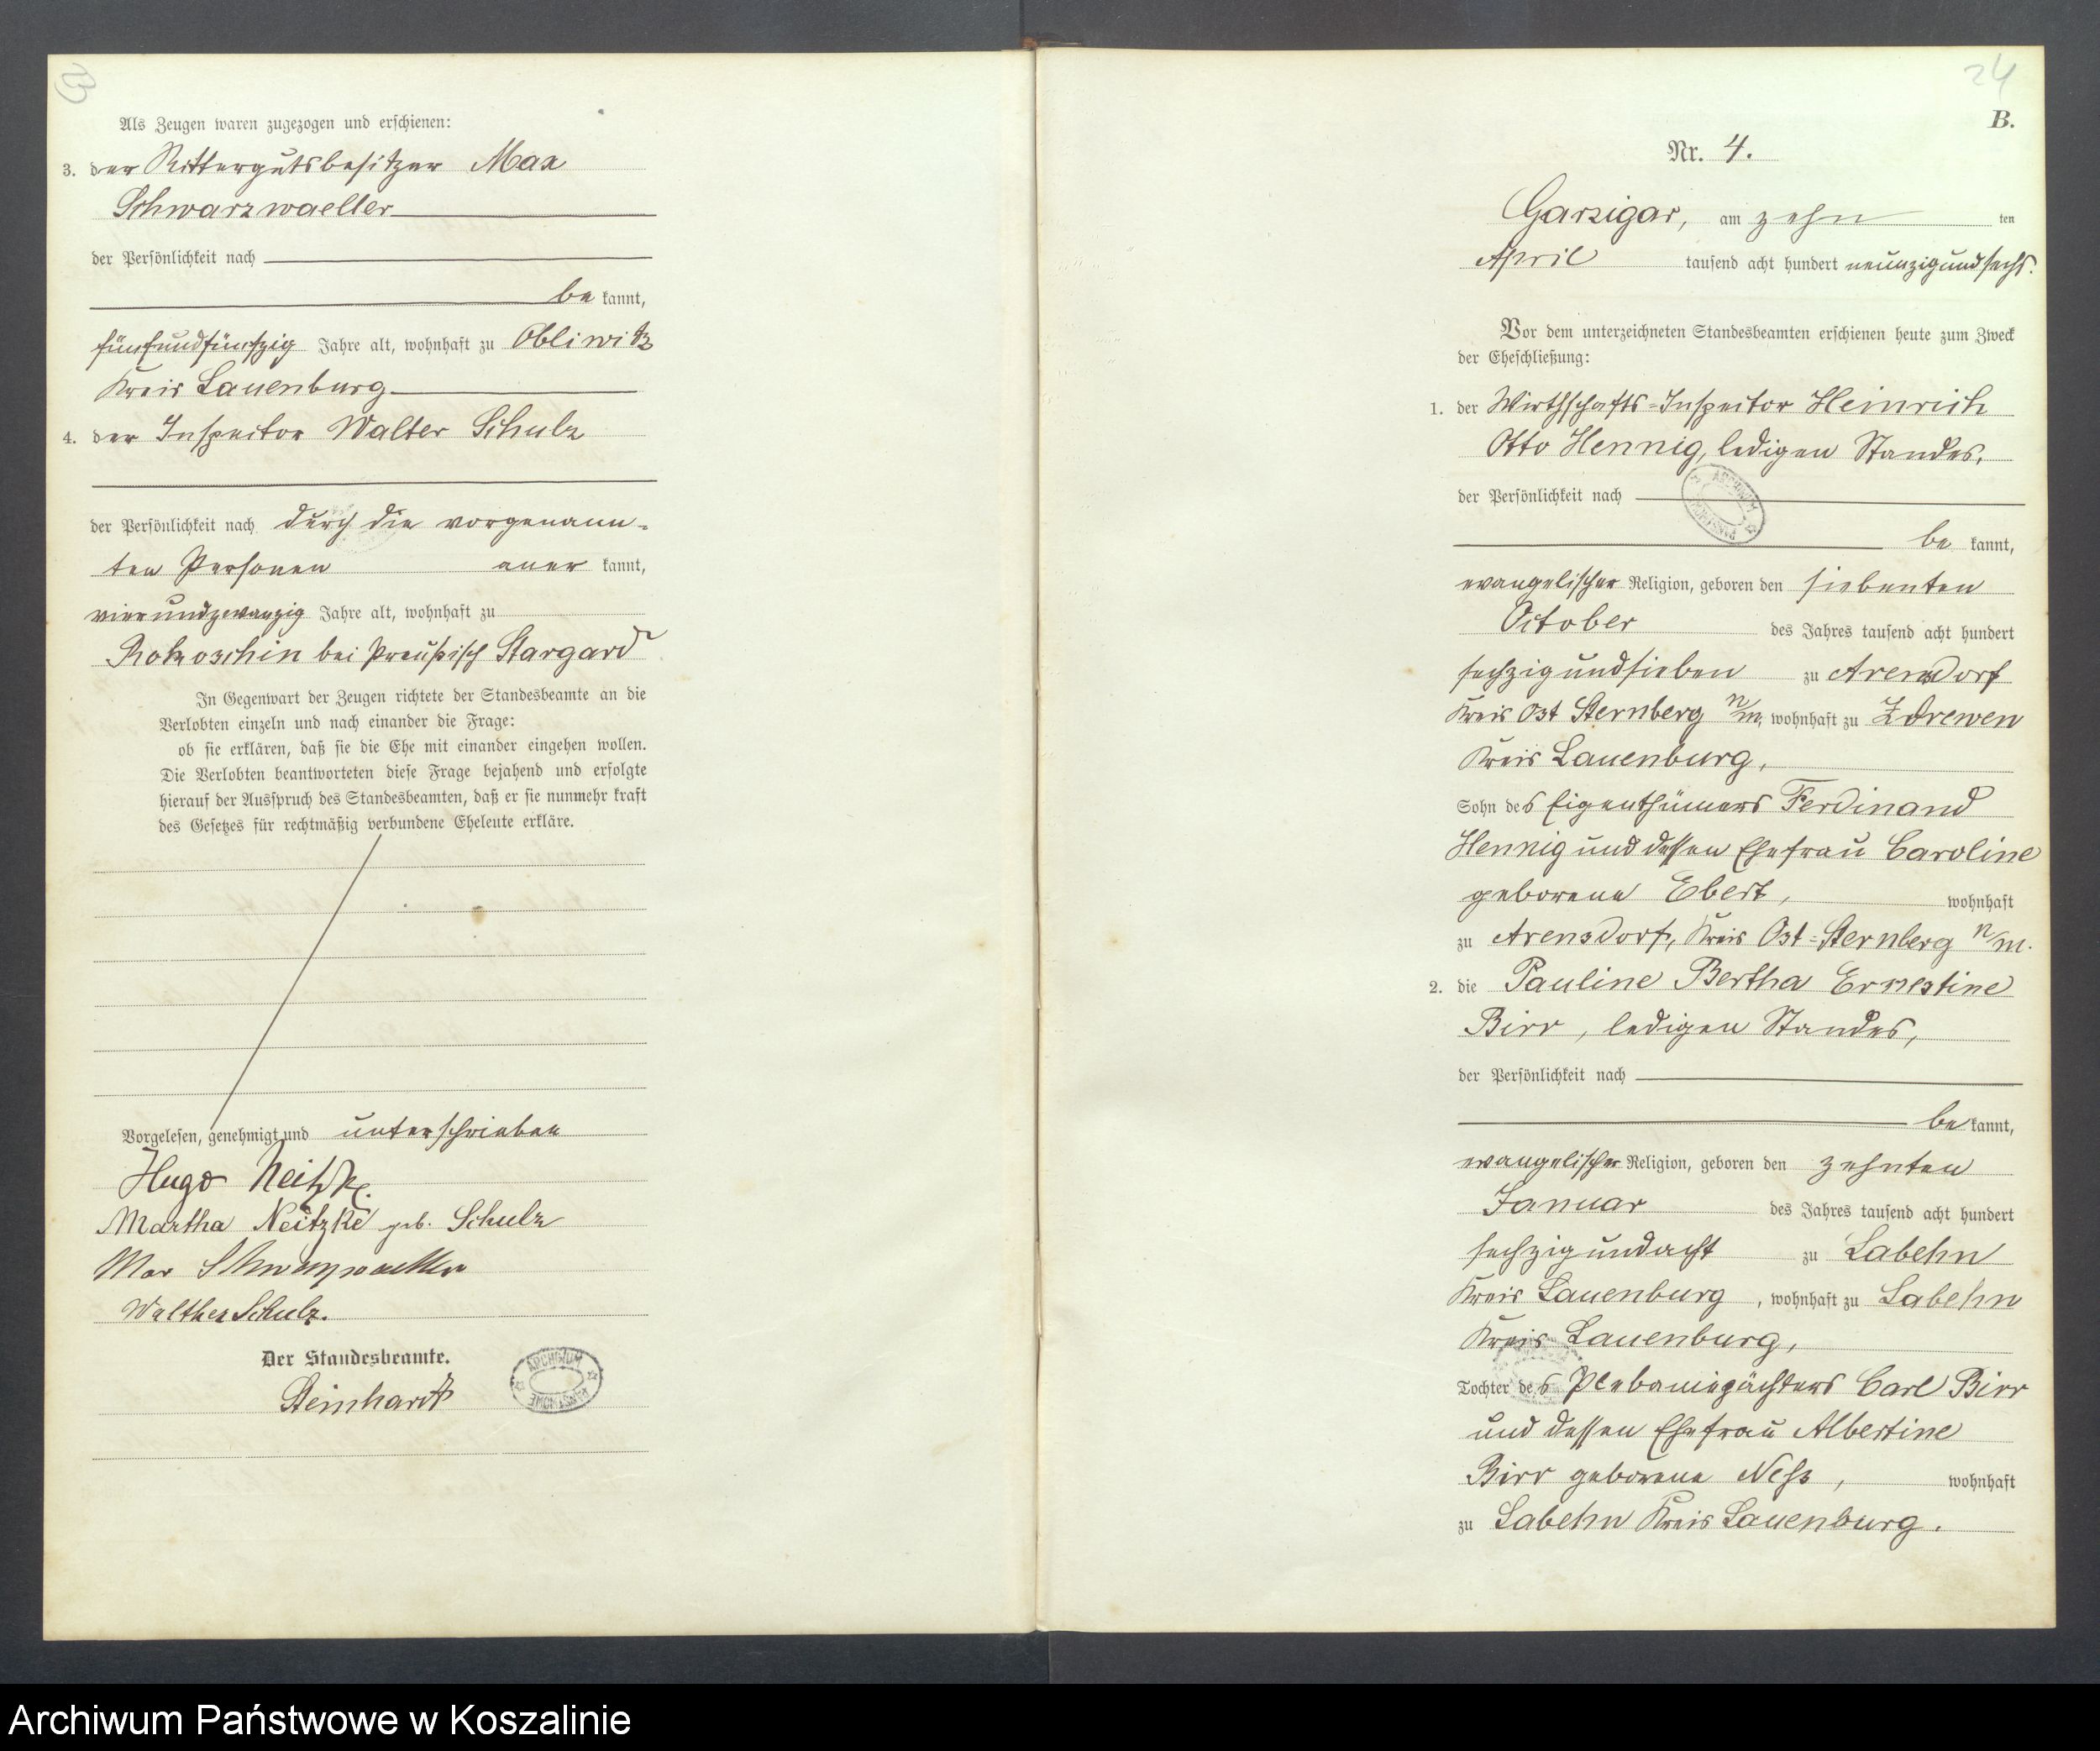 Als Zeugen waren zugezogen und erschienen:
3. der Rittergutsbesitzer Max
Schwarzwaeller
der Persönlichkeit nach
be kannt,
fünfundfünfzig Jahre alt, wohnhaft zu Obliwitz
Kreis Lauenburg
4. der Inspector Walter Schulz
der Persönlichkeit nach durch die vorgenann=
ten Personen aner kannt,
vierundzwanzig Jahre alt, wohnhaft zu
Rokoschin bei Preußisch Stargard
In Gegenwart der Zeugen richtete der Standesbeamte an die
Verlobten einzeln und nach einander die Frage:
ob sie erklären, daß sie die Ehe mit einander eingehen wollen.
Die Verlobten beantworteten diese Frage bejahend und erfolgte
hierauf der Ausspruch des Standesbeamten, daß er sie nunmehr kraft
des Gesetzes für rechtmäßig verbundene Eheleute erkläre.
Vorgelesen, genehmigt und unterschrieben
Hugo Neitzke.
Martha Neitzke geb. Schulz
Max Schwarzwaeller
Walther Schulz.
Der Standesbeamte.
Steinhardt
ARCHIWUM PAŃSTWOWE
24
B.
Nr. 4.
Garzigar, am zehn ten
April tausend acht hundert neunzigundsechs.
Vor dem unterzeichneten Standesbeamten erschienen heute zum Zweck
der Eheschließung:
1. der Wirthschafts=Inspector Heinrich
Otto Hennig, ledigen Standes,
der Persönlichkeit nach
ARCHIWUM PAŃSTWOWE
be kannt,
evangelischer Religion, geboren den siebenten
October des Jahres tausend acht hundert
sechzigundsieben zu Arensdorf
Kreis Ost Sternberg n/m, wohnhaft zu Zdrewen
Kreis Lauenburg,
Sohn des Eigenthümers Ferdinand
Hennig und dessen Ehefrau Caroline
geborene Ebert, wohnhaft
zu Arensdorf, Kreis Ost=Sternberg n/m.
2. die Pauline Bertha Ernestine
Birr, ledigen Standes,
der Persönlichkeit nach
be kannt,
evangelischer Religion, geboren den zehnten
Januar des Jahres tausend acht hundert
sechzigundacht zu Labehn
Kreis Lauenburg, wohnhaft zu Labehn
Kreis Lauenburg,
Tochter des Plebaniepächters Carl Birr
und dessen Ehefrau Albertine
Birr geborene Neß, wohnhaft
zu Labehn Kreis Lauenburg.
Archiwum Państwowe w Koszalinie